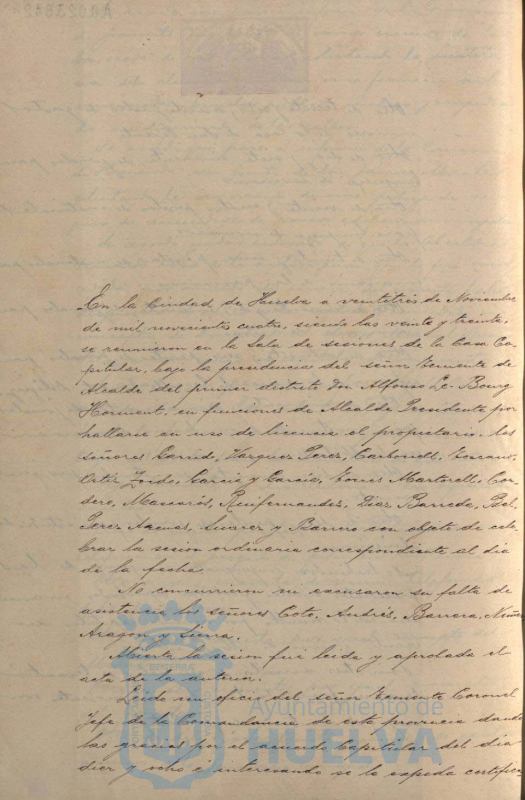 En la Ciudad de Huelva a veintitres de Noviembre
de mil novecientos cuatro, siendo las veinte y treinta,
se reunieron en la Sala de sesiones de la Casa Ca-
pitular, bajo la presidencia del señor Teniente de
Alcalde del primer distrito Don Alfonso Le-Bourg
Horment, en funciones de Alcalde Presidente por
hallarse en uso de licencia el propietario, los
señores Garrido, Vazquez Perez, Carbonell, Toscano,
Ortiz, Zoido, Garcia y Garcia, Torres Martorell, Cor-
dero, Mascarós, Ruifernandez, Diaz Barreda, Bel,
Perez Suarez y Barrero con objeto de cele-
brar la sesion ordinaria correspondiente al dia
de la fecha.
No concurrieron ni escusaron su falta de
asistencia los señores Coto, Andrés, Barrera, Nuñez,
Aragon y Sierra.
Abierta la sesion fué leida y aprobada el
acta de la anterior.
Leido un oficio del señor Teniente Coronel
Jefe de la Comandancia de esta provincia dando
las gracias por el acuerdo Capitular del dia
diez y ocho é interesando se le expida certifica-
Ayuntamiento de
HUELVA